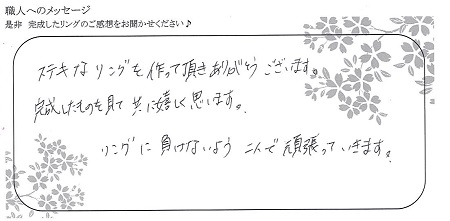 職人へのメッセージ
是非 完成したリングのご感想をお聞かせください♪
ステキなリングを作って頂きありがとうございます。
完成したものを見て共に嬉しく思います。
リングに負けないよう二人で頑張っていきます。